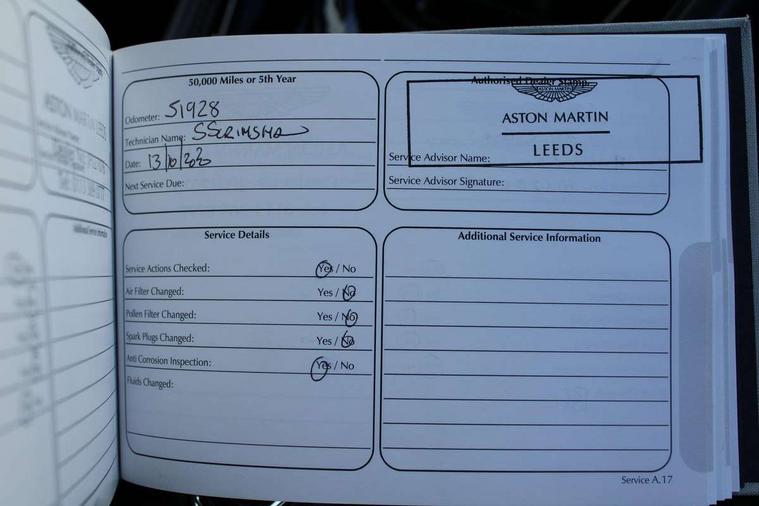 50,000 Miles or 5th Year
Odometer: 51928
Technician Name:
Date: 13/10/2020
Next Service Due:
Authorised Dealer Stamp
ASTON MARTIN
ASTON MARTIN
LEEDS
Service Advisor Name:
Service Advisor Signature:
Service Details
Service Actions Checked: Yes / No
Air Filter Changed: Yes / No
Pollen Filter Changed: Yes / No
Spark Plugs Changed: Yes / No
Anti Corrosion Inspection: Yes / No
Fluids Changed:
Additional Service Information
Service A.17